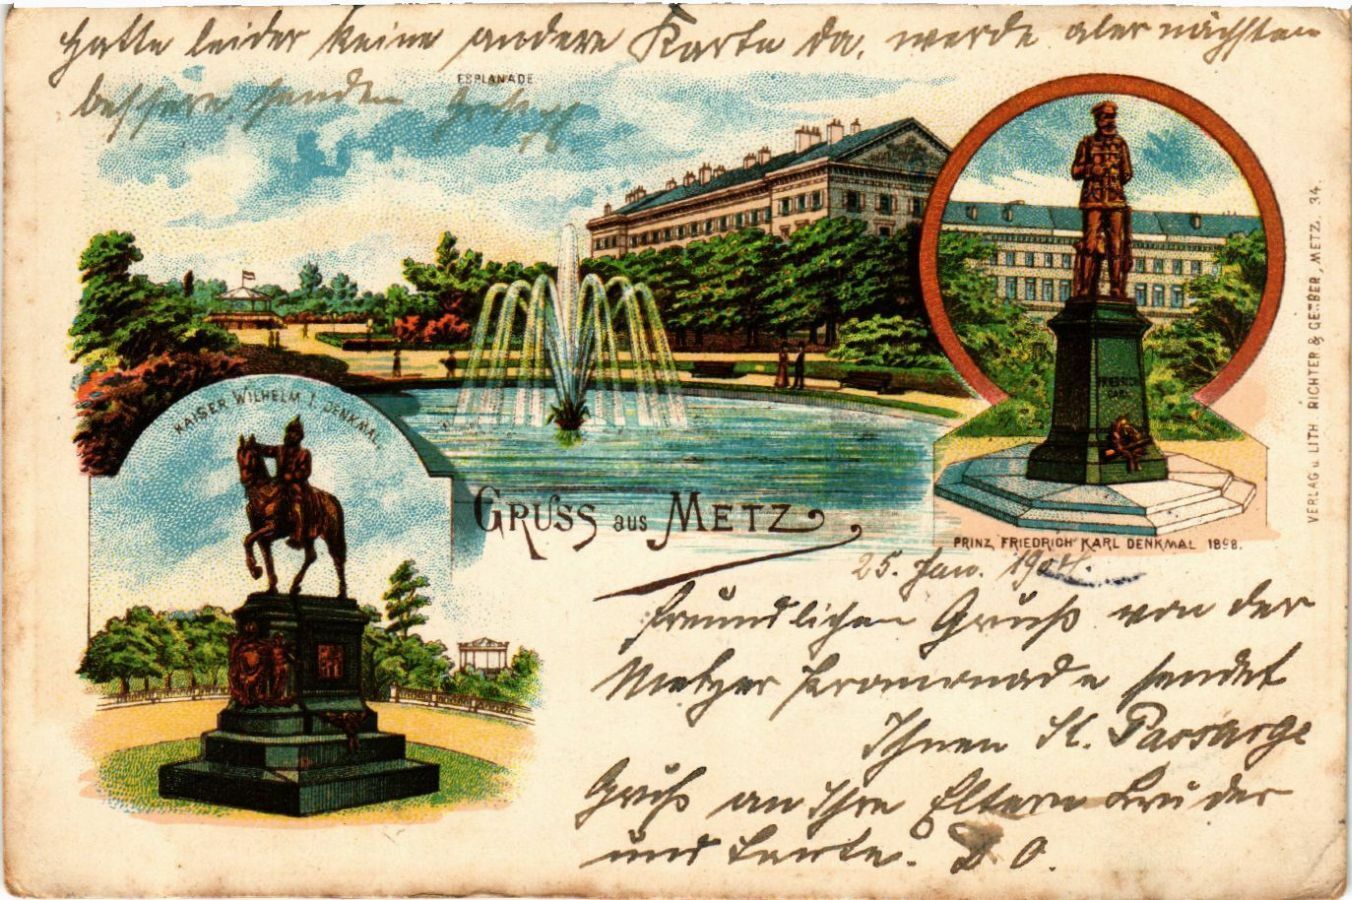 Hatte leider keine andere Karte da, werde aber nächstens
bessere senden
ESPLANADE
KAISER WILHELM I. DENKMAL
FRIEDRICH
CARL
GRUSS aus METZ
PRINZ FRIEDRICH KARL DENKMAL 1898.
VERLAG u LITH RICHTER & GERBER, METZ. 34.
25. Jan. 1904.
Freundlichen Gruß von der
Metzer Promenade sendet
Ihnen H. Passarge
Gruß an Ihre Eltern Bruder
und Tante.